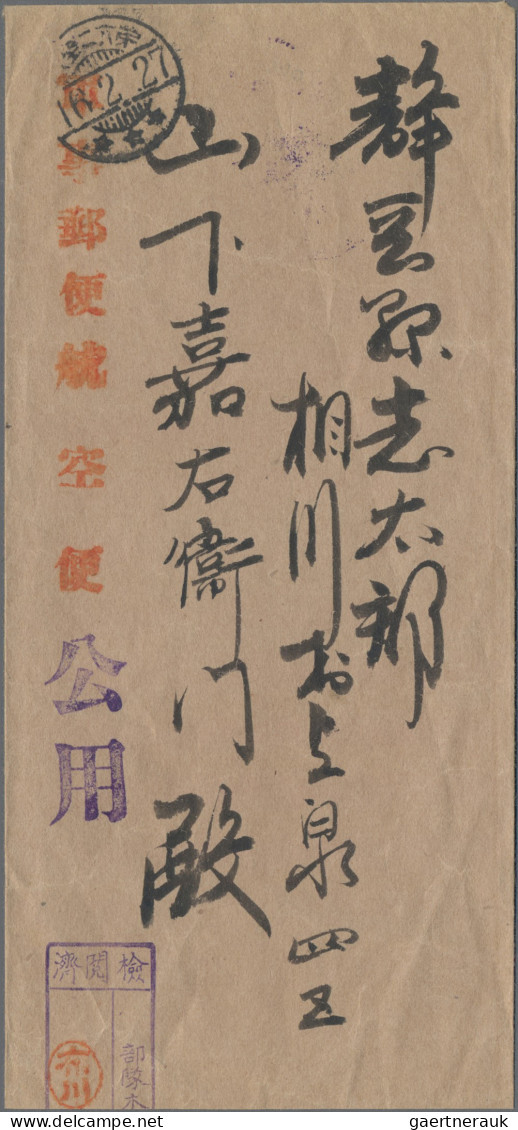 静岡縣志太郡
相川村上泉四五
山下嘉右衛門殿
軍事郵便航空便
公用
16.2.27
檢閲濟
部隊本
gaertnerauk